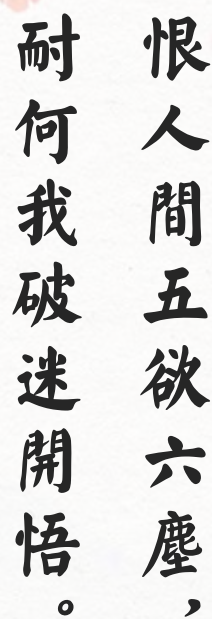 恨人間五欲六塵，
耐何我破迷開悟。